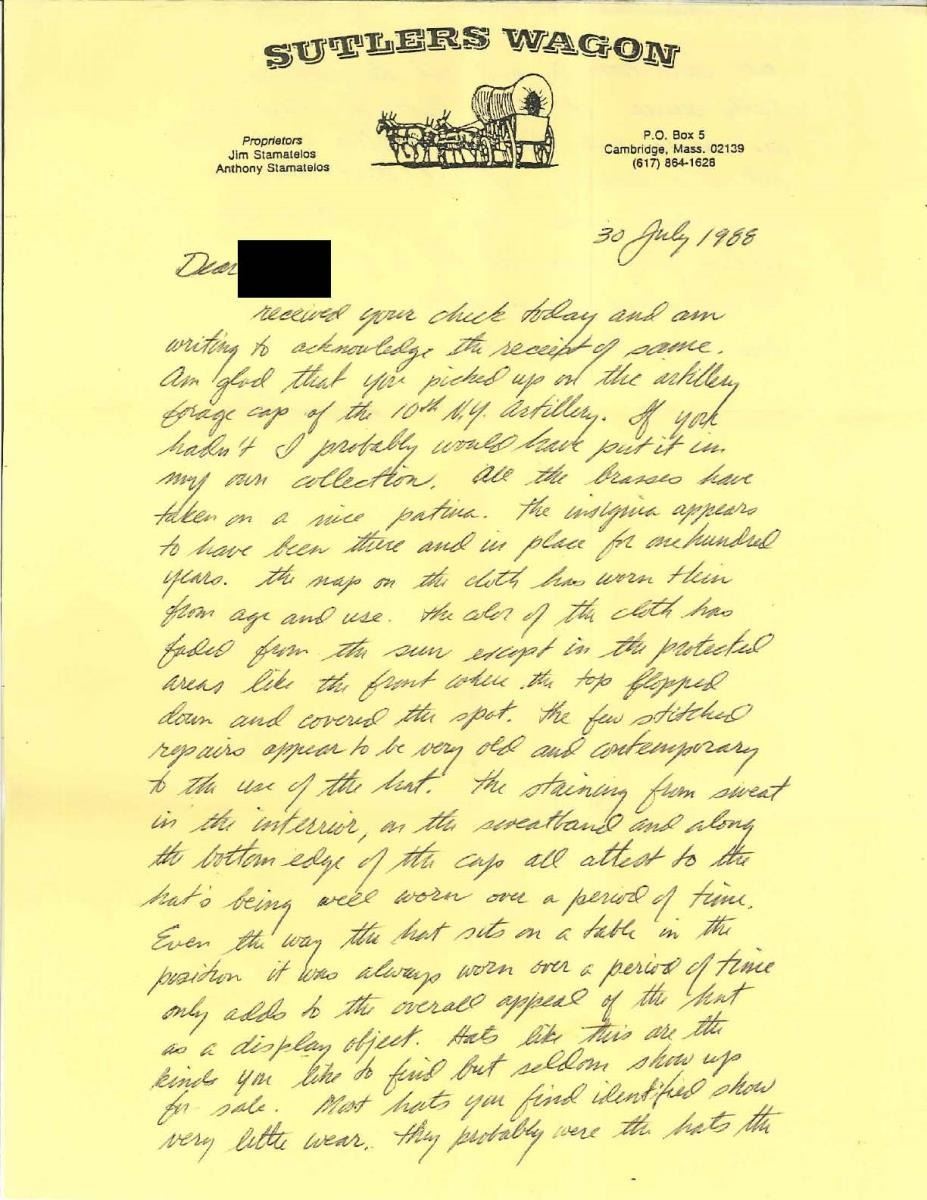 SUTLERS WAGON
Proprietors
Jim Stamatelos
Anthony Stamatelos
P.O. Box 5
Cambridge, Mass. 02139
(617) 864-1628
30 July 1988
Dear
received your check today and am
writing to acknowledge the receipt of same.
Am glad that you picked up on the artillery
forage cap of the 10th N.Y. Artillery. If you
hadn't I probably would have put it in
my own collection. All the brasses have
taken on a nice patina. The insignia appears
to have been there and in place for one hundred
years. The nap on the cloth has worn thin
from age and use. The color of the cloth has
faded from the sun except in the protected
areas like the front where the top flopped
down and covered the spot. The few stitched
repairs appear to be very old and contemporary
to the use of the hat. The staining from sweat
in the interrior, on the sweatband and along
the bottom edge of the cap all attest to the
hat's being well worn over a period of time.
Even the way the hat sits on a table in the
position it was always worn over a period of time
only adds to the overall appeal of the hat
as a display object. Hats like this are the
kinds you like to find but seldom show up
for sale. Most hats you find identified show
very little wear. They probably were the hats the